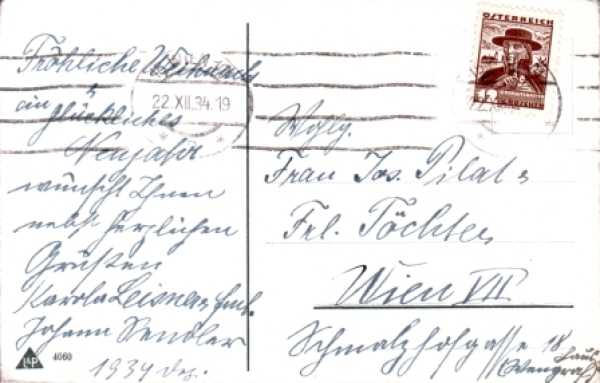 Fröhliche Weihnachts
ein glückliches
Neujahr
wünscht Ihnen
nebst herzlichen
Grüßen
Karola
Johann Sendler
1934 Dez.
4060
22.XII.34.19
ÖSTERREICH
GROSCHEN
Frau Jos. Pilat &
Frl. Töchter
Wien VII
Schmalzhofgasse 18